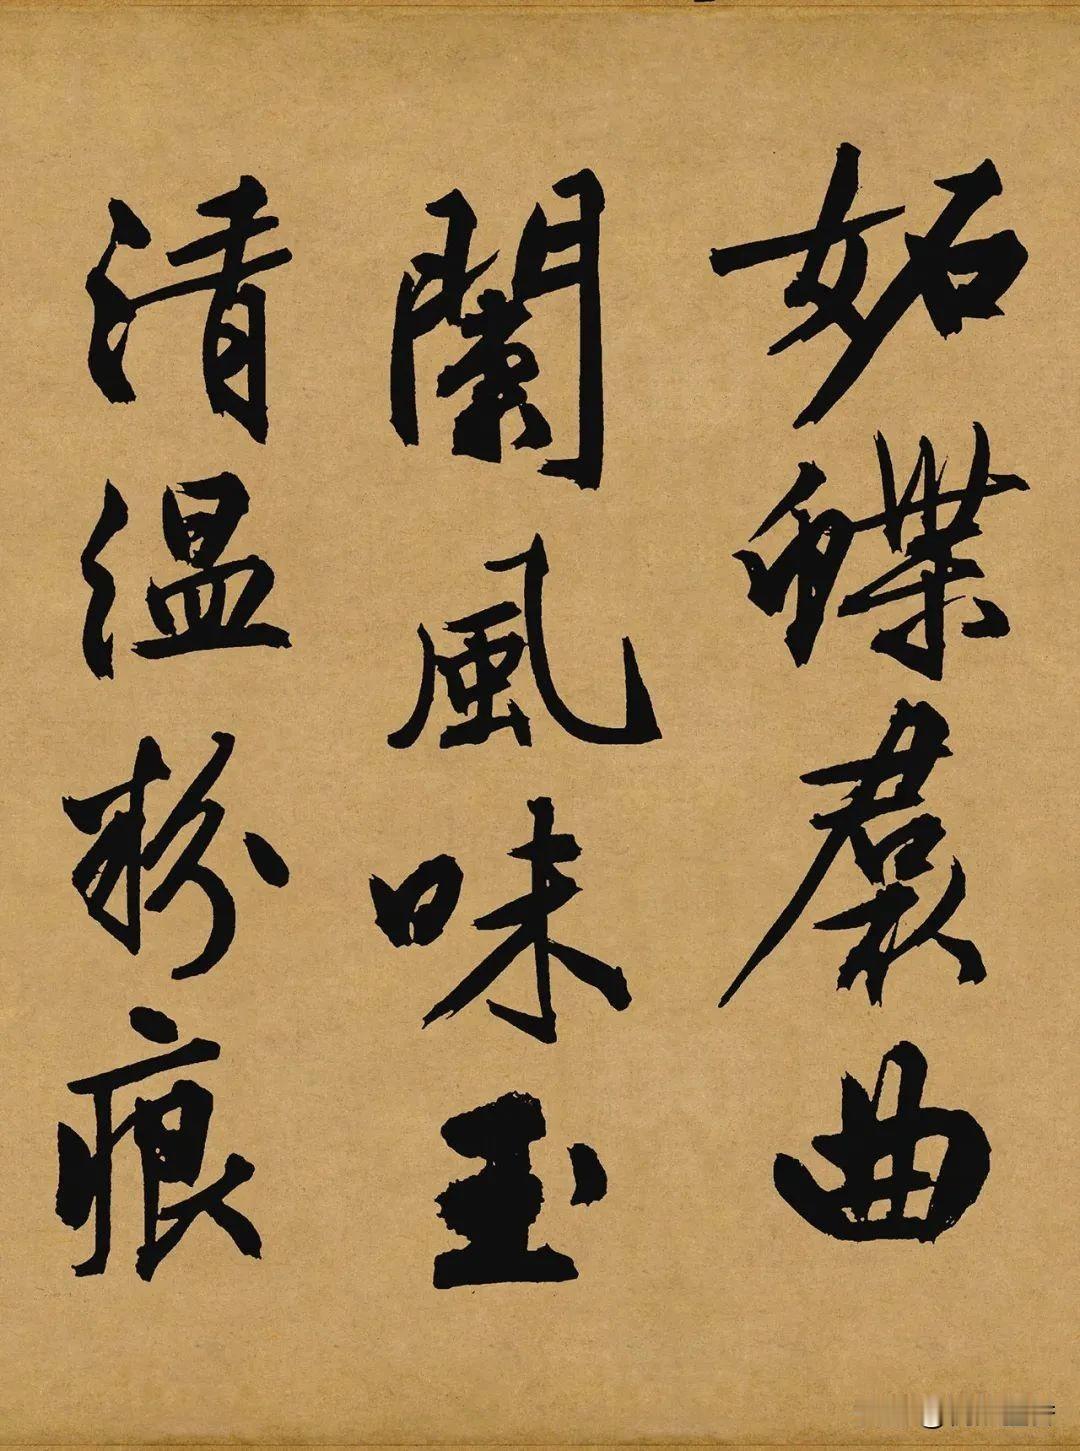 妬蝶裠曲
闌風味玉
清温粉痕